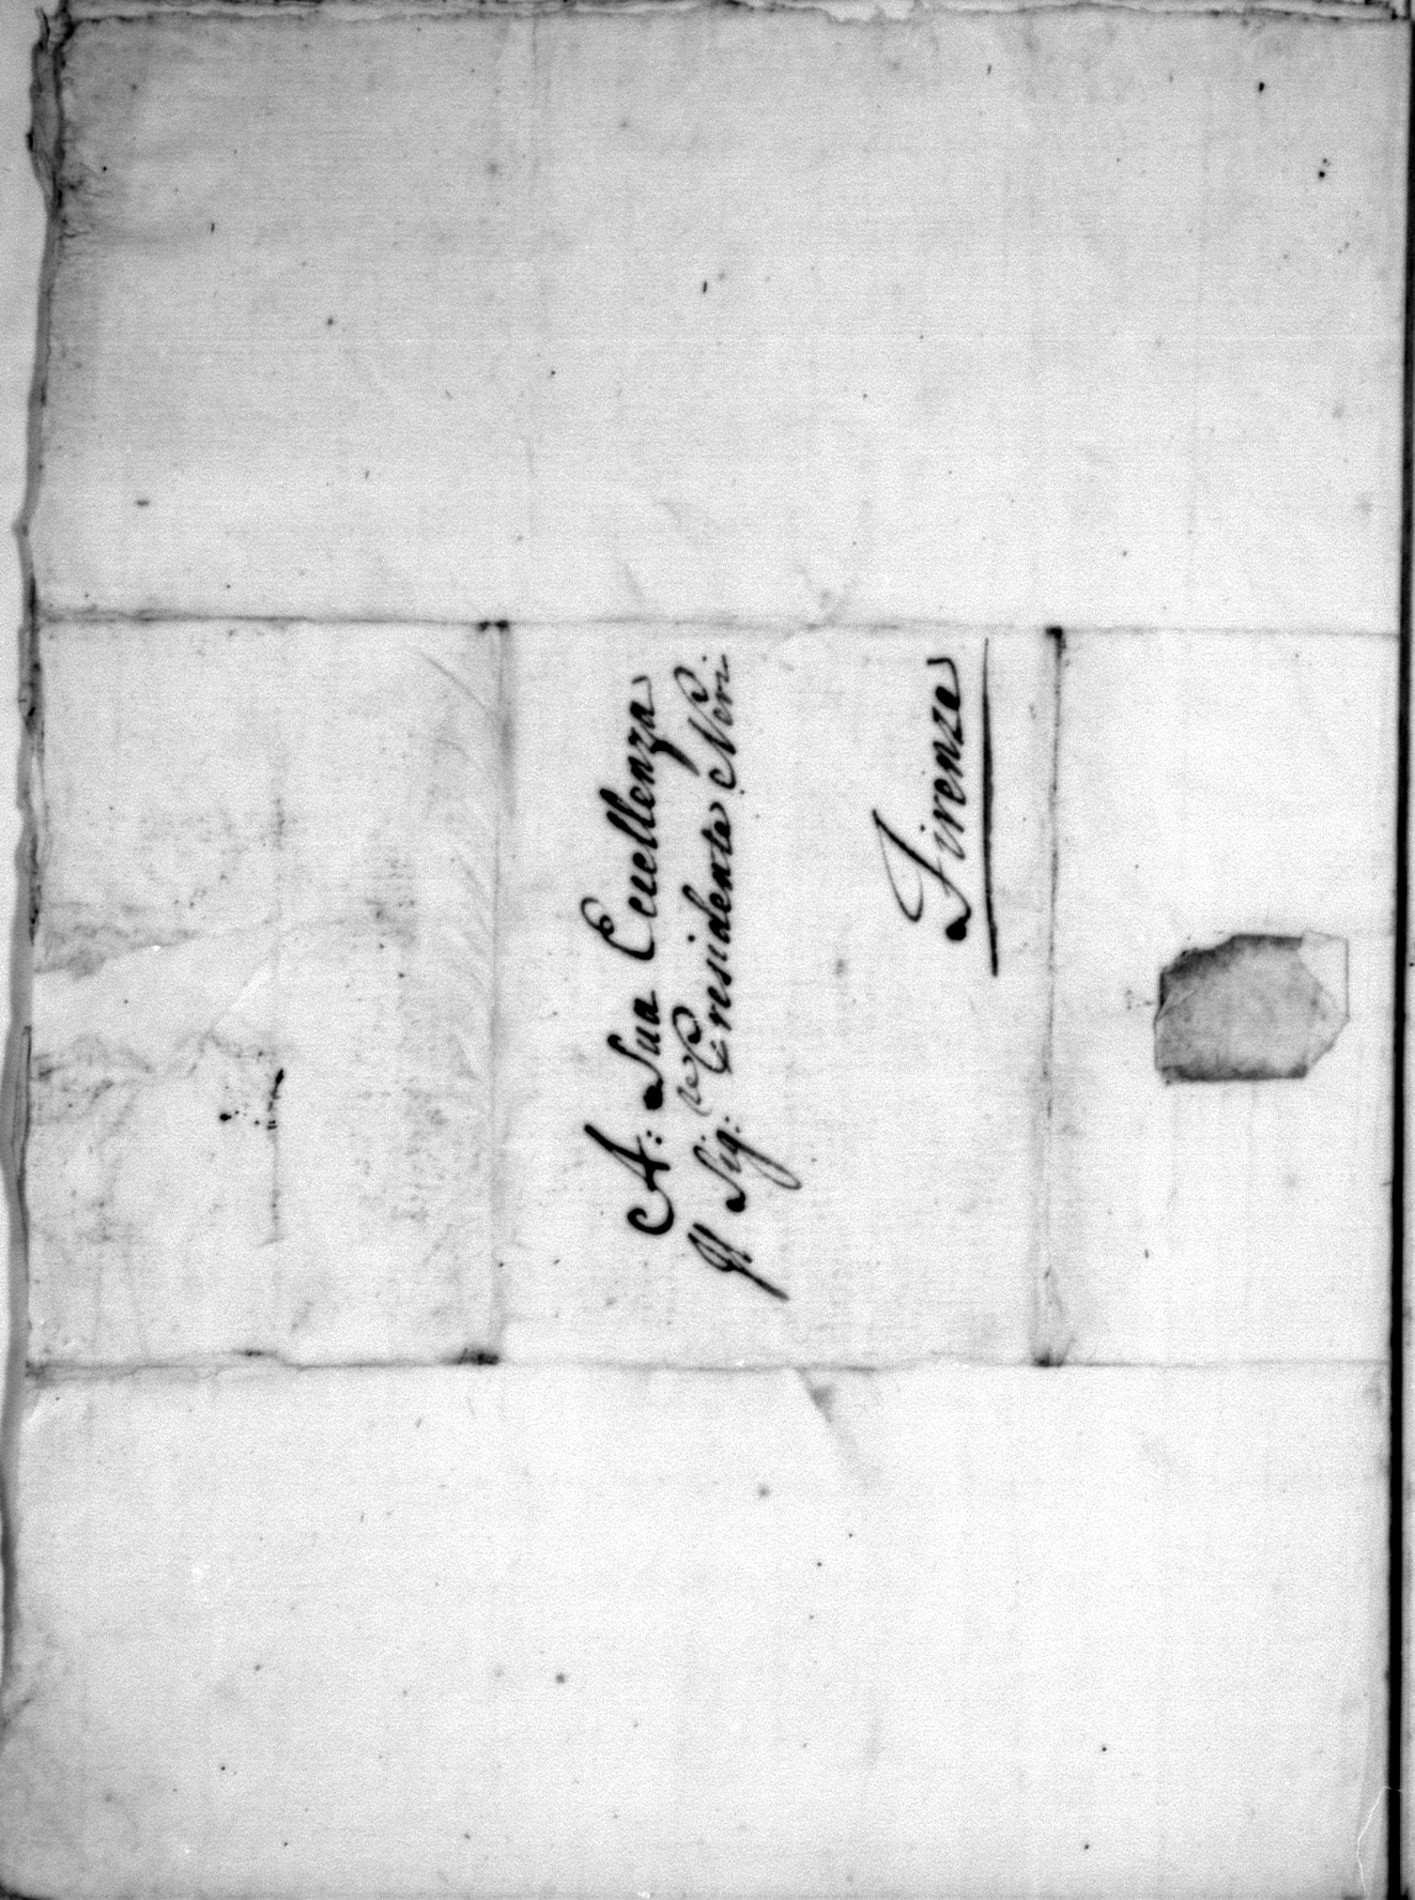 A: Sua Eccellenza
Il Sig: Presidente Neri
Firenze